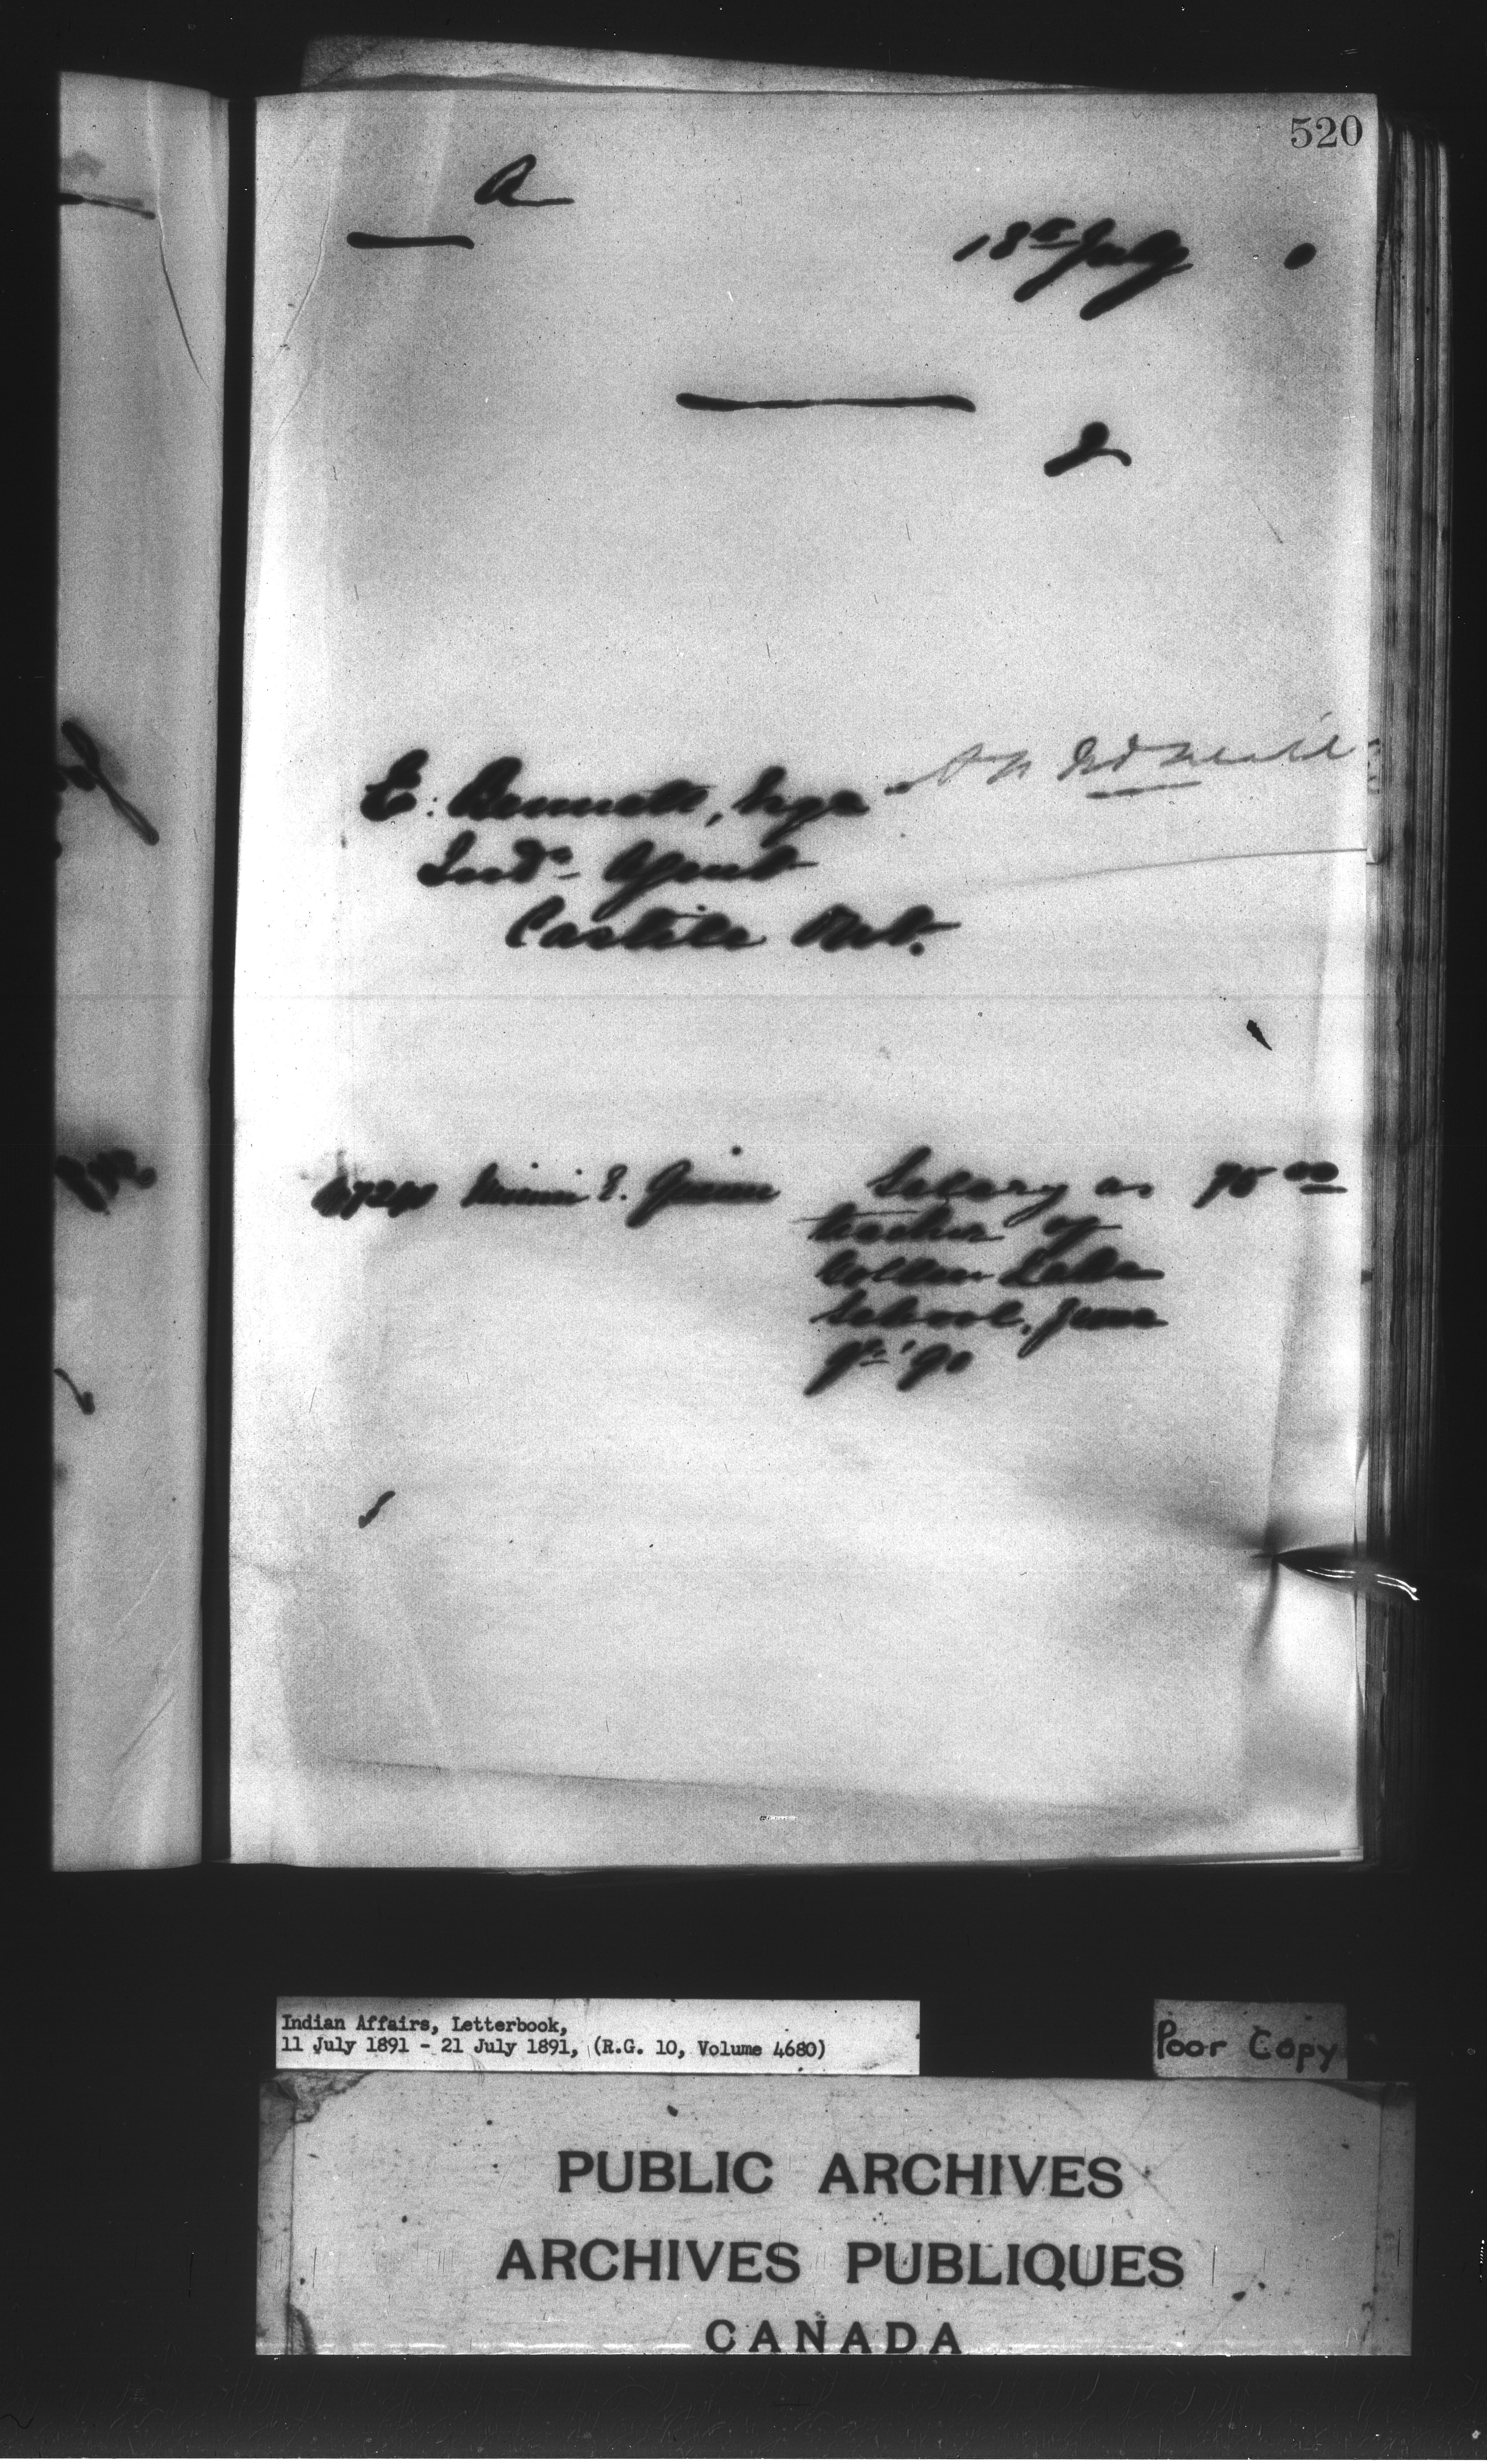 520
A
18th July
2
E. Bennett, Esqre
Ind. Agent
Castile Ont.
Minnie E. Quinn Salary as 75 00
teacher of
Golden Lake
School, June
qr. '90
Indian Affairs, Letterbook,
11 July 1891 - 21 July 1891, (R.G. 10, Volume 4680)
Poor Copy
PUBLIC ARCHIVES
ARCHIVES PUBLIQUES
CANADA